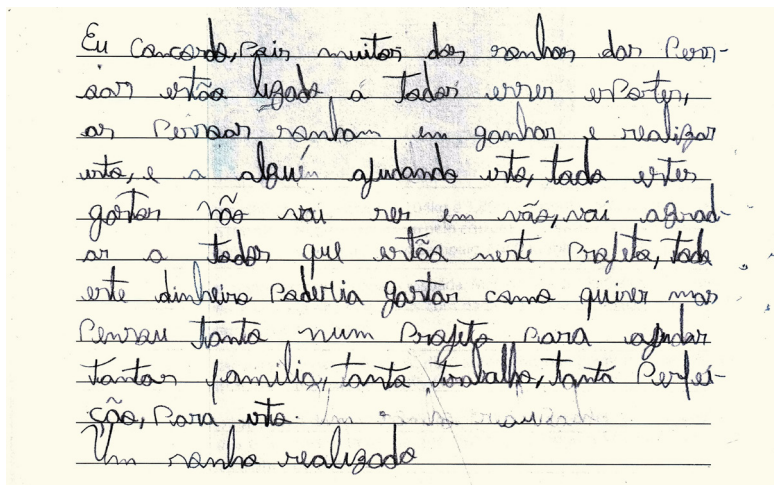 Eu concordo, pois muitos dos sonhos das pess-
soas estão ligado á todos esses esportes,
as pessoas sonham em ganhar e realizar
isto, e a alguém ajudando isto, todo estes
gastos não vai ser em vão, vai agrad-
ar a todos que estão neste projeto, todo
este dinheiro poderia gastar como quiser mas
pensou tanto num projeto para ajudar
tantas familia, tanto trabalho, tanta perfei-
ção, para isto.
Um sonho realizado